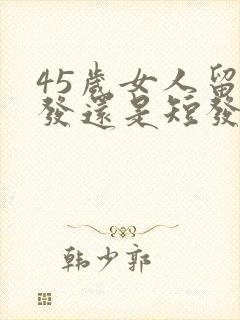 45歲女人留
發還是短發
韩少郭